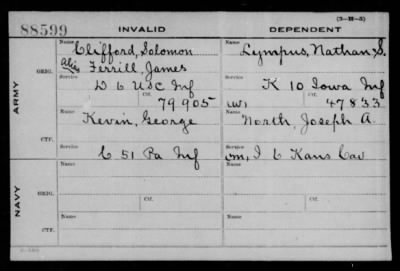 (3-H-5)
88599 INVALID DEPENDENT
Name Clifford, Solomon Name Lympus, Nathan, S.
Alias Ferrill, James
ORIG. Service Service
D 6 USC Inf K 10 Iowa Inf
Ctf. 79905 (W) Ctf. 47833
ARMY
Name Kevin, George Name North, Joseph A.
Service Service
C 51 Pa Inf om, I 6 Kans Cav
CTF.
Name Name
Service Service
ORIG. Ctf. Ctf.
NAVY
Name Name
CTF.